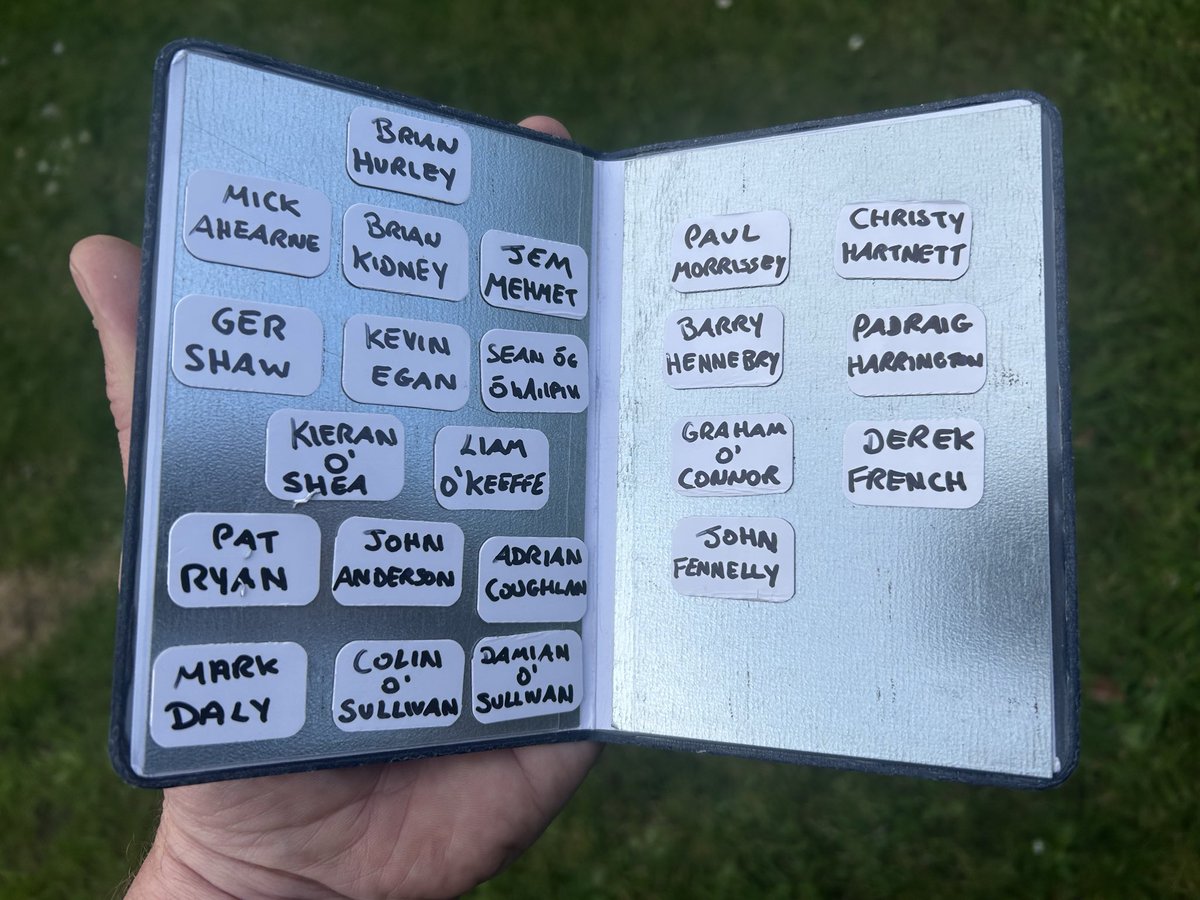 BRIAN
HURLEY
MICK
AHEARNE
BRIAN
KIDNEY
JEM
MEHMET
GER
SHAW
KEVIN
EGAN
SEAN ÓG
Ó hAILPIN
KIERAN
O'
SHEA
LIAM
O'KEEFFE
PAT
RYAN
JOHN
ANDERSON
ADRIAN
COUGHLAN
MARK
DALY
COLIN
O'
SULLIVAN
DAMIAN
O'
SULLIVAN
PAUL
MORRISSEY
CHRISTY
HARTNETT
BARRY
HENNEBRY
PADRAIG
HARRINGTON
GRAHAM
O'
CONNOR
DEREK
FRENCH
JOHN
FENNELLY